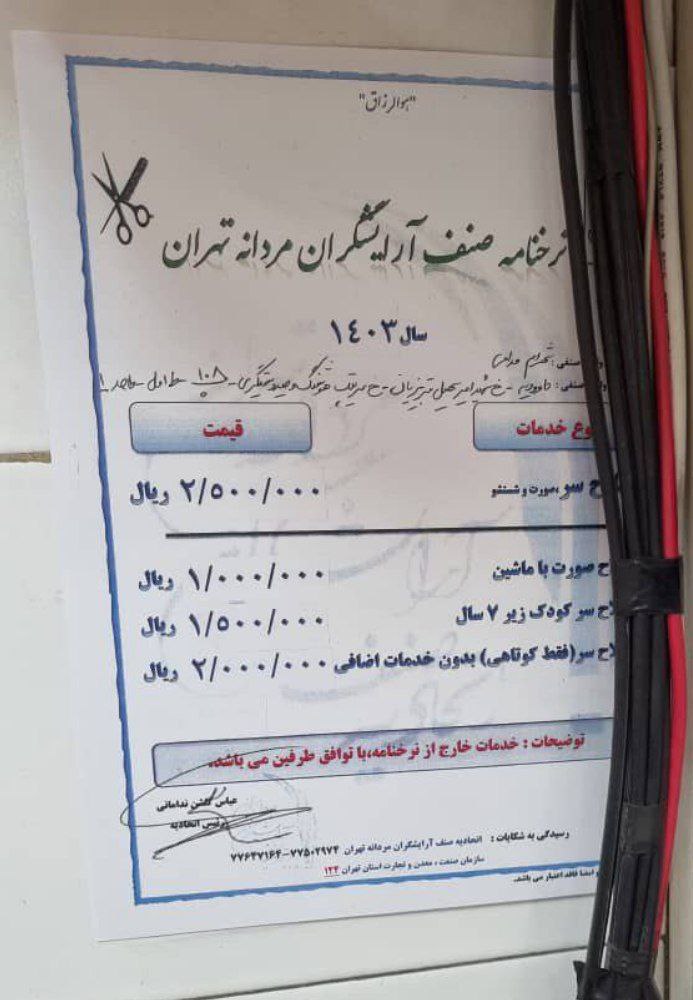 "هوالرزاق"
نرخنامه صنف آرایشگران مردانه تهران
سال ۱۴۰۳
صنفی :
صنفی : داوودیه - خ شهید امیر سهیل تبریزیان - خ - پ ۱۰۸ - ط اول - واحد ۱
وع خدمات قیمت
ح سر،صورت و شستشو ۲/۵۰۰/۰۰۰ ریال
ح صورت با ماشین ۱/۰۰۰/۰۰۰ ریال
لاح سر کودک زیر ۷ سال ۱/۵۰۰/۰۰۰ ریال
لاح سر(فقط کوتاهی) بدون خدمات اضافی ۲/۰۰۰/۰۰۰ ریال
توضیحات : خدمات خارج از نرخنامه،با توافق طرفین می باشد.
عباس گلشن ندامانی
رئیس اتحادیه
رسیدگی به شکایات : اتحادیه صنف آرایشگران مردانه تهران ۷۷۵۰۲۹۷۴-۷۷۶۴۷۱۶۴
سازمان صنعت ، معدن و تجارت استان تهران ۱۲۴
و امضا فاقد اعتبار می باشد.